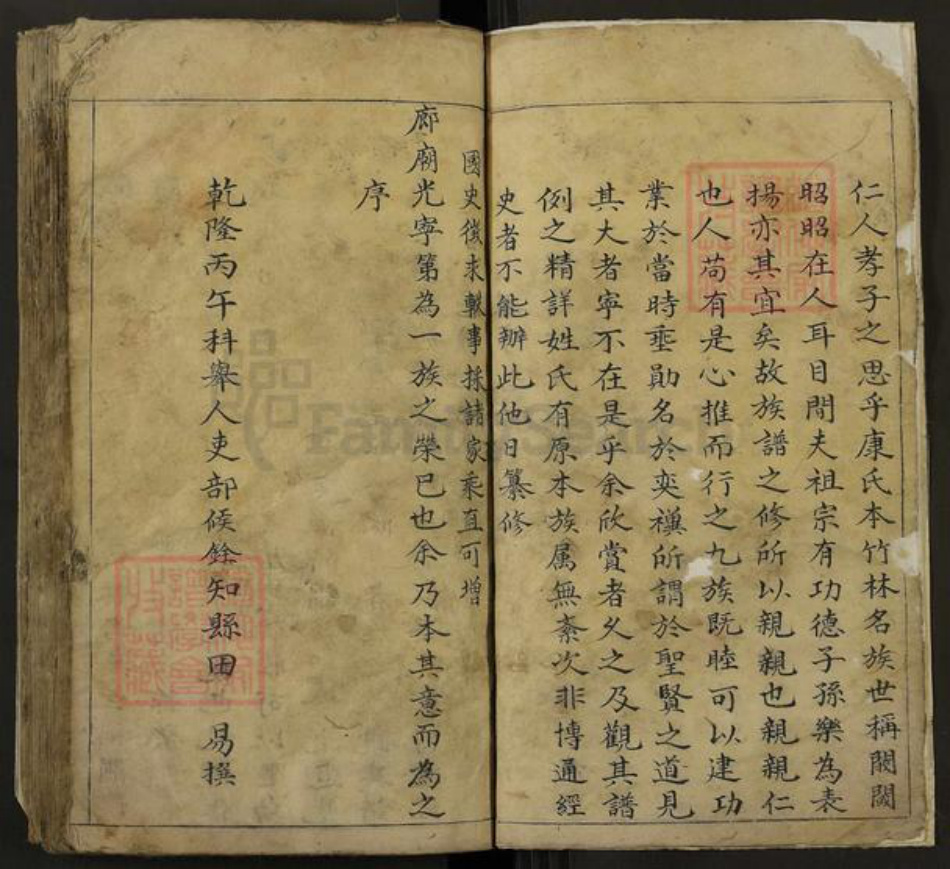 仁人孝子之思乎康氏本竹林名族世稱閥閱
昭昭在人耳目間夫祖宗有功德子孫樂為表
揚亦其宜矣故族譜之修所以親親也親親仁
也人苟有是心推而行之九族既睦可以建功
業於當時垂勛名於奕禩所謂於聖賢之道見
其大者寧不在是乎余欣賞者久之及觀其譜
例之精詳姓氏有原本族属無紊次非博通經
史者不能辦此他日纂修
國史徵求軼事採諸家乘直可增
廊廟光寧第為一族之榮已也余乃本其意而為之
序
乾隆丙午科舉人吏部候銓知縣田 易撰
FamilySearch